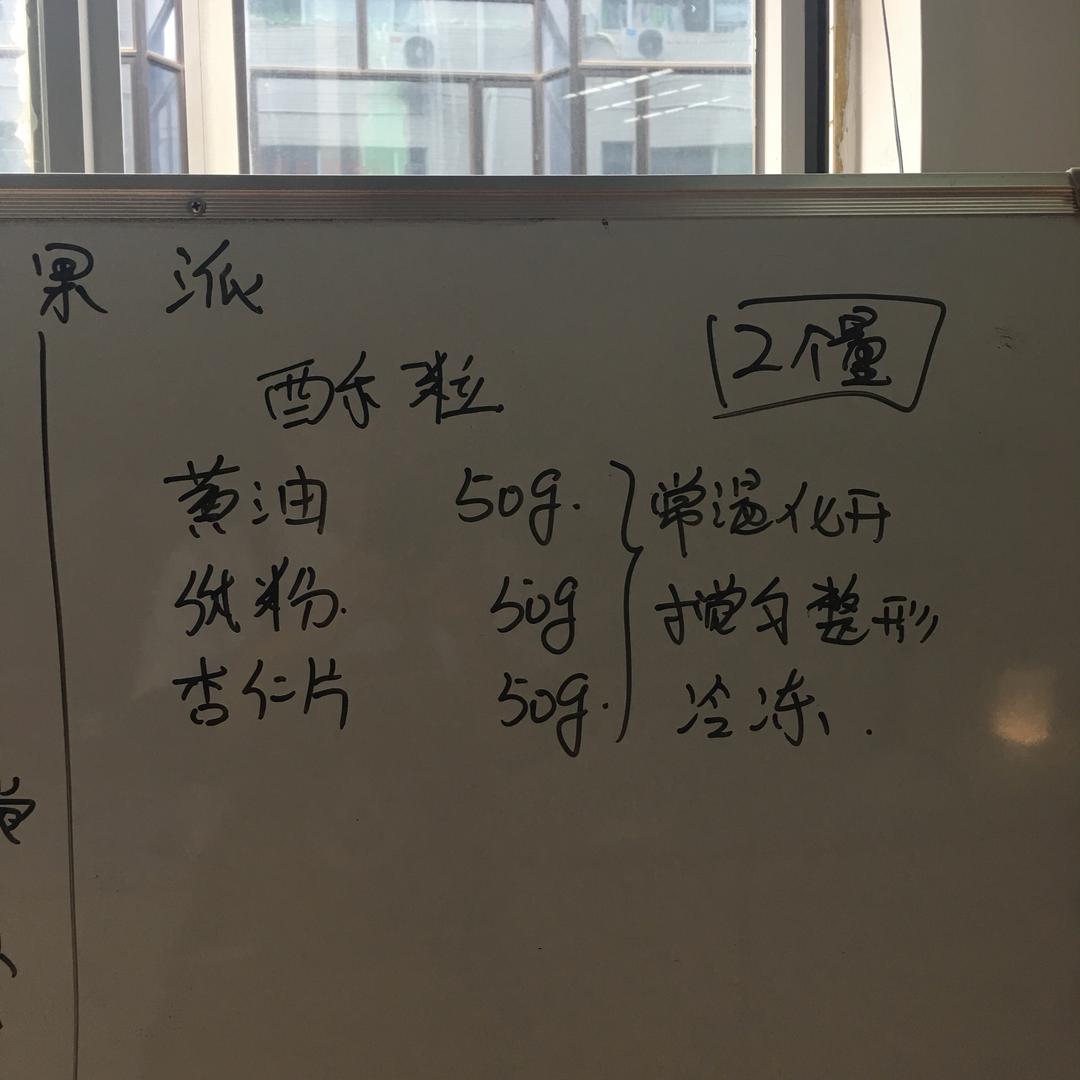 果派
2个量
酥粒
黄油 50g.
低粉. 50g
杏仁片 50g.
常温化开
搅匀整形
冷冻.